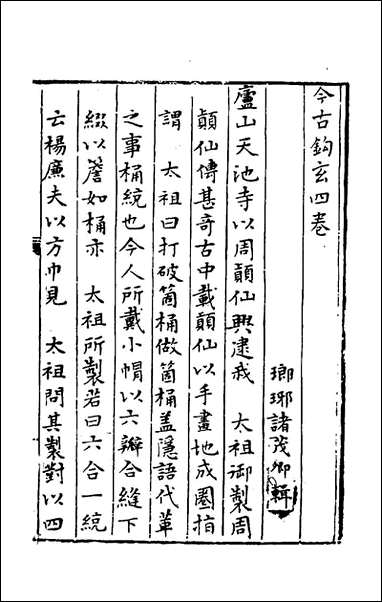 今古鈎玄四巻
瑯琊諸茂卿輯
廬山天池寺以周顛仙興逮我　太祖御製周
顛仙傳甚奇古中載顛仙以手畫地成圈指
謂　太祖曰打破箇桶做箇桶盖隱語代革
之事桶統也今人所戴小帽以六瓣合縫下
綴以簷如桶亦　太祖所製若曰六合一統
云楊廉夫以方巾見　太祖問其製對以四